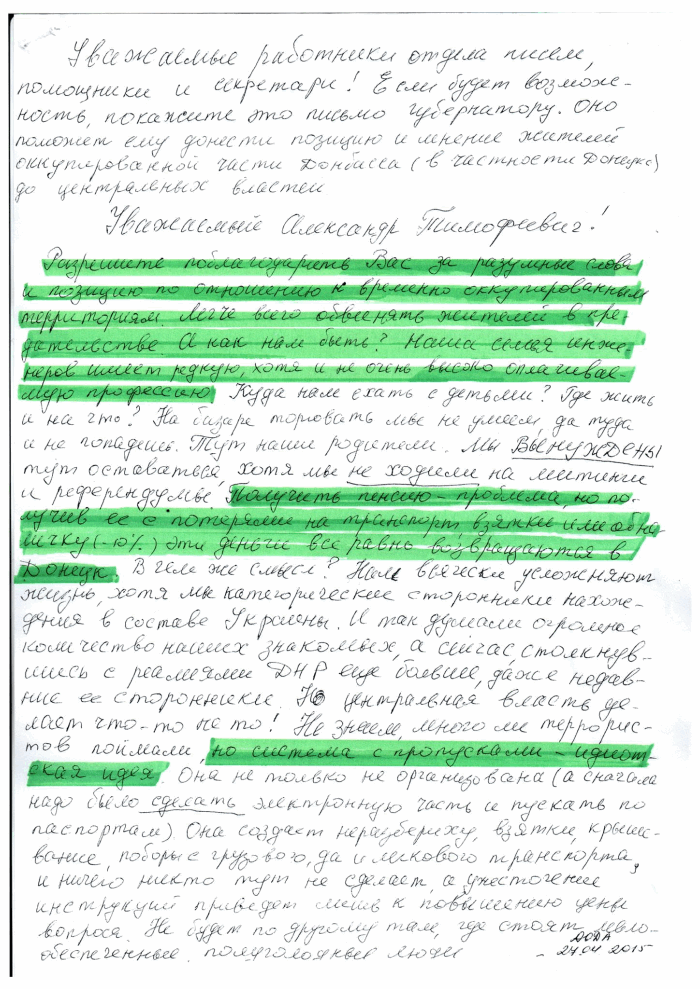 Уважаемые работники отдела писем,
помощники и секретари! Если будет возмож-
ность, покажите это письмо губернатору. Оно
поможет ему донести позицию и мнение жителей
оккупированной части Донбасса (в частности Донецка)
до центральных властей
Уважаемый Александр Тимофеевич!
Разрешите поблагодарить Вас за разумные слова
и позицию по отношению к временно оккупированным
территориям. Легче всего обвинять жителей в пре-
дательстве. А как нам быть? Наша семья инже-
неров имеет редкую, хотя и не очень высоко оплачивае-
мую профессию. Куда нам ехать с детьми? Где жить
и на что? На базаре торговать мы не умеем, да туда
и не попадешь. Тут наши родители. Мы ВЫНУЖДЕНЫ
тут оставаться, хотя мы не ходили на митинги
и референдумы. Получить пенсию - проблема, но по-
лучив ее с потерями на транспорт, взятки или обна-
личку (-10%) эти деньги все равно возвращаются в
Донецк. В чем же смысл? Нам всячески усложняют
жизнь, хотя мы категорические сторонники нахож-
дения в составе Украины. И так думали огромное
количество наших знакомых, а сейчас столкнув-
шись с реалиями ДНР еще больше, даже недав-
ние ее сторонники. Но центральная власть де-
лает что-то не то! Не знаем, много ли террорис-
тов поймали, но система с пропусками - идиот-
ская идея. Она не только не организована (а сначала
надо было сделать электронную часть и пускать по
паспортам). Она создает неразбериху, взятки, крыше-
вание, поборы с грузового, да и легкового транспорта,
и ничего никто тут не сделает, а ужесточение
инструкций приведет лишь к повышению цены
вопроса. Не будет по другому там, где стоят мало-
обеспеченные, полуголодные люди
- ДОДА
24.04 2015